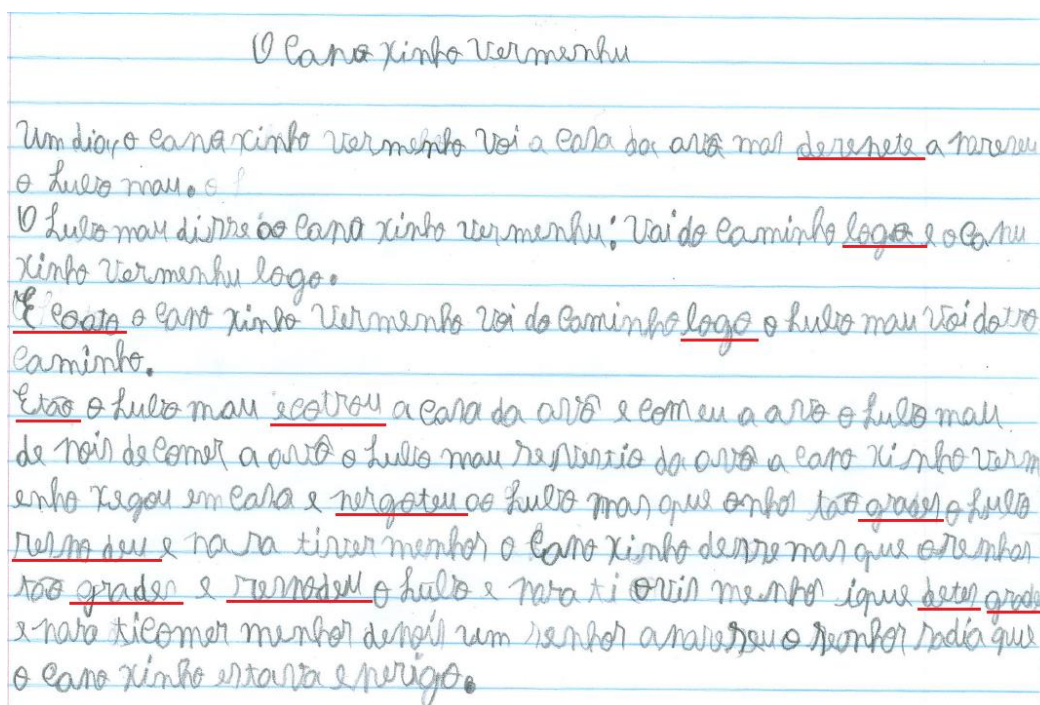 O Capo xinho Vermenhu
Um dia, o capo xinho vermenho voi a casa da avó mas derepete a pareseu
o Lulvo mau.
O Lulvo mau disse ao capo xinho vermenhu: Vai do caminho logo e o capu
xinho Vermenhu logo.
E coato o capo xinho Vermenho voi do caminho logo o Lulvo mau voi dotro
caminho.
Etão o Lulvo mau ecotrou a casa da avó e comeu a avó o Lulvo mau
de pois de comer a avó o Lulvo mau se vestio da avó a capo xinho verm
enho xegou em casa e pergoteu ao Lulvo mas que onhos tão grades o Lulvo
respo deu e pa ra tivver menhor o Capo xinho desse mas que oresnhas
tão grades e respodeu o Lulvo e para ti ovir menhor ique detes grades
e para ticomer menhor depois um senhor apareseu o senhor sadia que
o capo xinho estava e perigo.